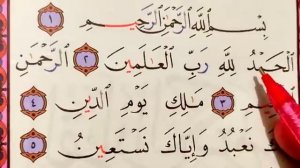 بِسْمِ ٱللَّهِ ٱلرَّحْمَٰنِ ٱلرَّحِيمِ ١
ٱلْحَمْدُ لِلَّهِ رَبِّ ٱلْعَٰلَمِينَ ٢ ٱلرَّحْمَٰنِ
٣ مَٰلِكِ يَوْمِ ٱلدِّينِ ٤
نَعْبُدُ وَإِيَّاكَ نَسْتَعِينُ ٥